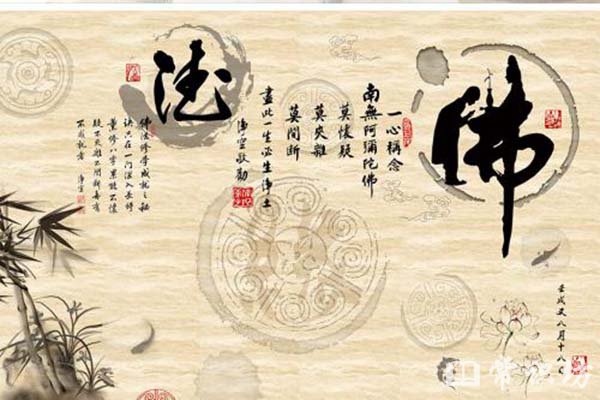 佛
壬戌又八月十八
一心稱念
南無阿彌陀佛
莫懷疑
莫夾雜
莫間斷
盡此一生必生淨土
淨空敬勸
德
佛法修學成就之秘
訣只在一門深入長時
薰修八字果能不懷
疑不夾雜不間斷無有
不成就者 淨空
常识坊